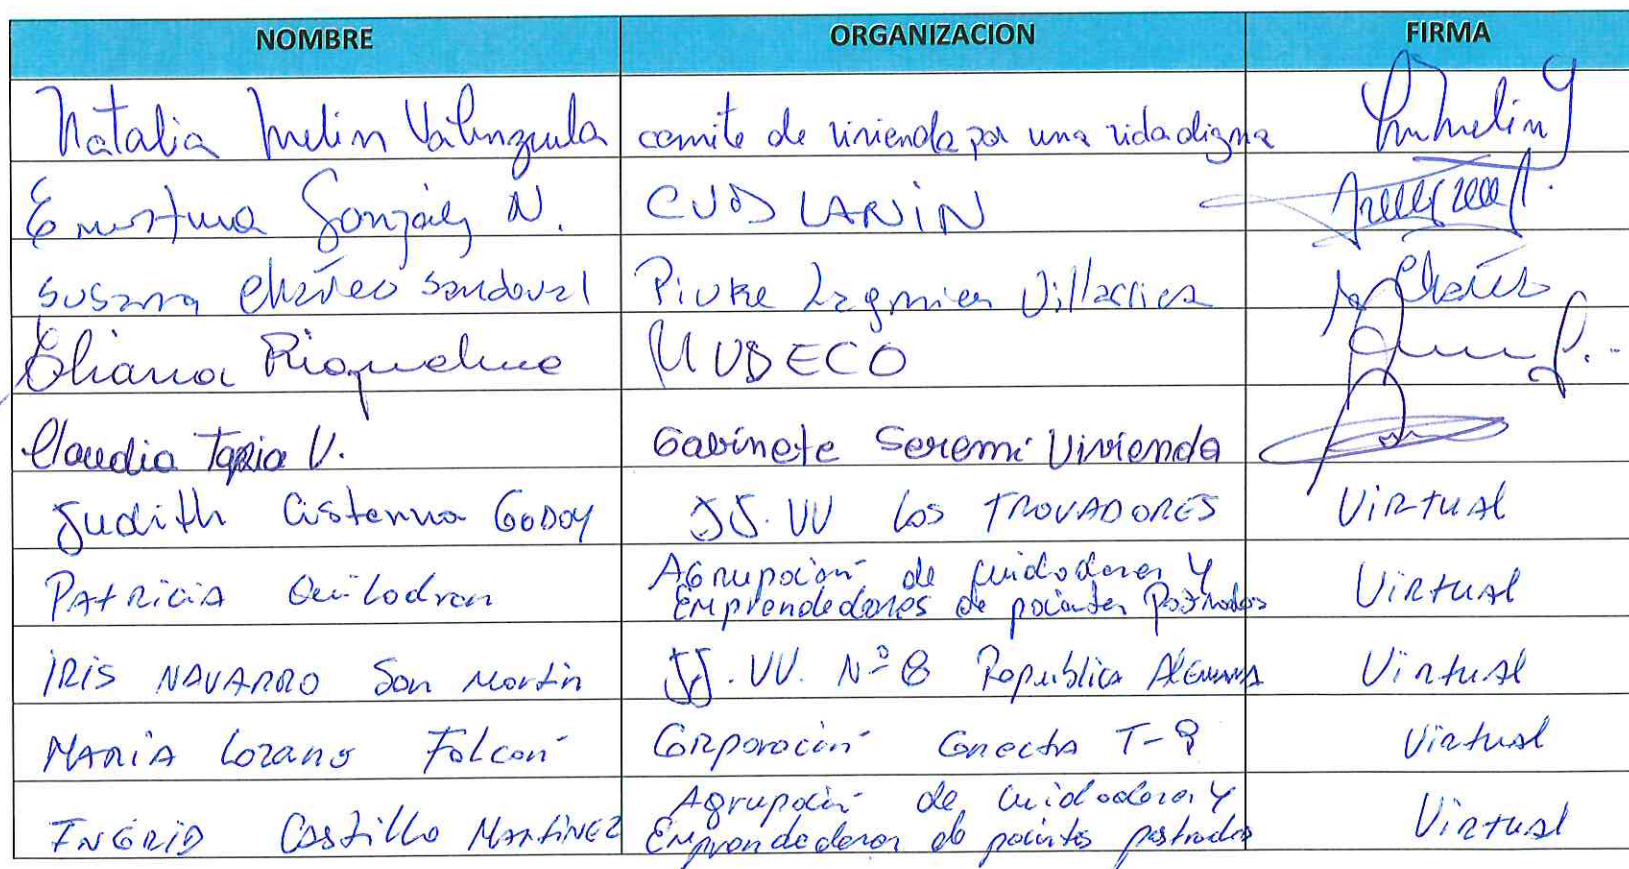 NOMBRE ORGANIZACION FIRMA
Natalia Melin Valenzuela comite de vivienda por una vida digna
González N. CUDS LANIN
Susana Cháves Sandoval Piuke Lagmien Villarrica
Eliana Riquelme MUDECO
Claudia Tapia V. Gabinete Seremi Vivienda
Judith Cisterna GODOY JJ.VV LOS TROVADORES VIRTUAL
PATRICIA Quilodran Agrupación de cuidadores Y
Emprendedores de pacientes Postrados Virtual
IRIS NAVARRO San Martin JJ.VV. N° 8 Republica Alemana Virtual
MARIA Lozano Falcon Corporación Conecta T-9 Virtual
INGRID Castillo MARTINEZ Agrupación de cuidadores Y
Emprendedores de pacientes postrados Virtual